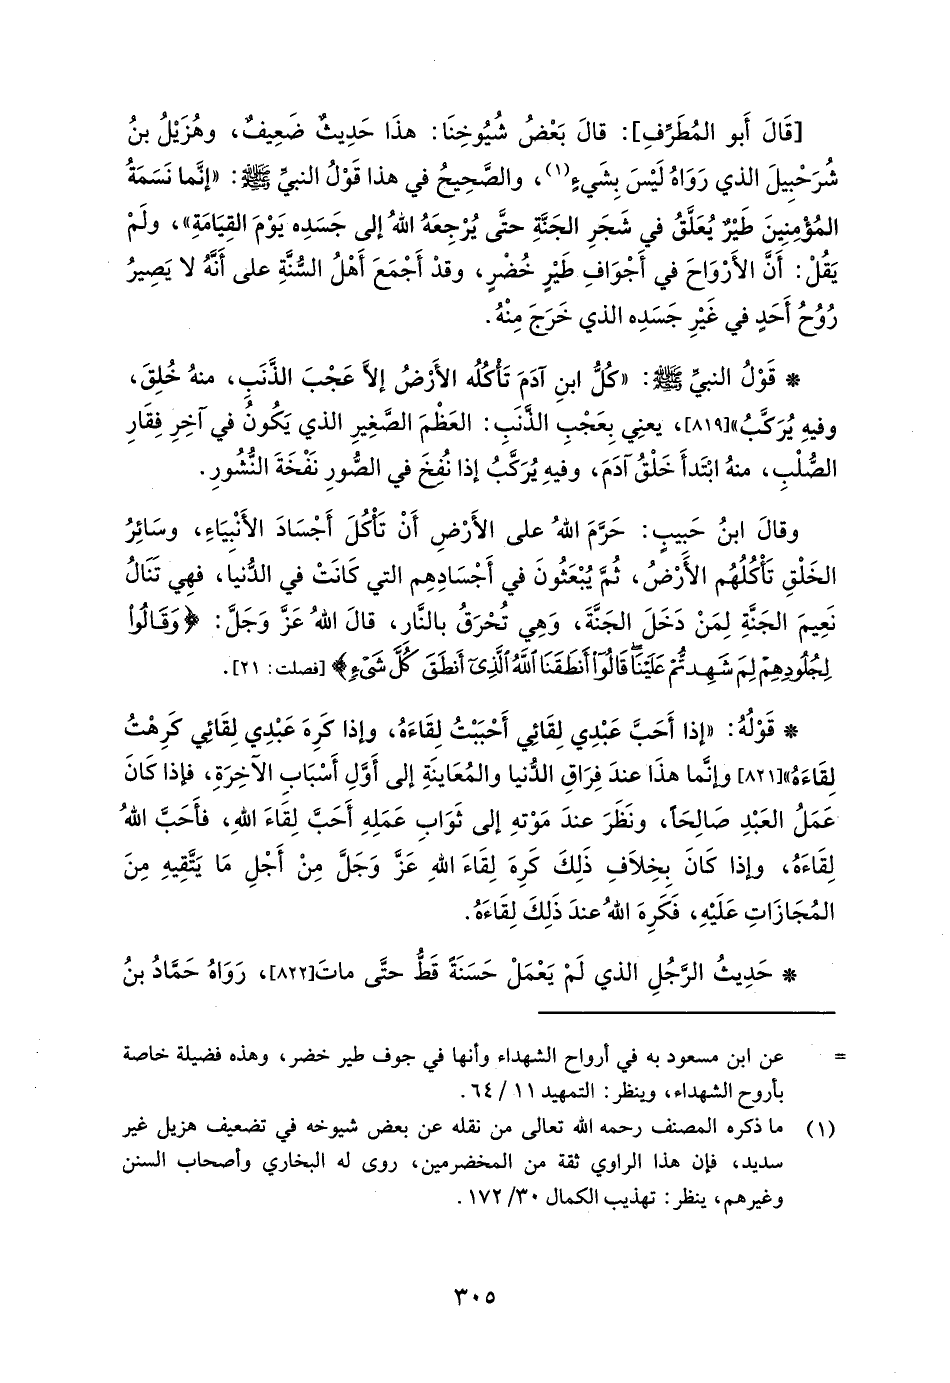 [قَالَ أَبو المُطَرِّفِ]: قالَ بَعْضُ شُيُوخِنَا: هذَا حَدِيثٌ ضَعِيفٌ، وهُزَيْلُ بنُ
شُرَحْبِيلَ الذي رَوَاهُ لَيْسَ بِشَيءٍ(١)، والصَّحِيحُ في هذا قَوْلُ النبيِّ ﷺ: «إنَّما نَسَمَةُ
المُؤْمِنِينَ طَيْرٌ يُعَلَّقُ في شَجَرِ الجَنَّةِ حتَّى يُرْجِعَهُ اللهُ إلى جَسَدِه يَوْمَ القِيَامَةِ»، ولَمْ
يَقُلْ: أَنَّ الأَرْوَاحَ في أَجْوَافِ طَيْرٍ خُضْرٍ، وقدْ أَجْمَعَ أَهْلُ السُّنَّةِ على أَنَّهُ لا يَصِيرُ
رُوْحُ أَحَدٍ في غَيْرِ جَسَدِه الذي خَرَجَ مِنْهُ.
* قَوْلُ النبيِّ ﷺ: «كُلُّ ابنِ آدَمَ تَأْكُلُه الأَرْضُ إلاَّ عَجْبَ الذَّنَبِ، منهُ خُلِقَ،
وفيهِ يُرَكَّبُ»[٨١٩]، يعنِي بِعَجْبِ الذَّنَبِ: العَظْمَ الصَّغِيرِ الذي يَكُونُ في آخِرِ فِقَارِ
الصُّلْبِ، منهُ ابْتَدأَ خَلْقُ آدَمَ، وفيهِ يُرَكَّبُ إذا نُفِخَ في الصُّورِ نَفْخَةَ النُّشُورِ.
وقالَ ابنُ حَبِيبٍ: حَرَّمَ اللهُ على الأَرْضِ أَنْ تَأْكُلَ أَجْسَادَ الأَنْبِيَاءِ، وسَائِرُ
الخَلْقِ تَأْكُلُهُم الأَرْضُ، ثُمَّ يُبْعَثُونَ في أَجْسَادِهِم التي كَانَتْ في الدُّنيا، فهِي تَنَالُ
نَعِيمَ الجَنَّةِ لِمَنْ دَخَلَ الجَنَّةَ، وَهِي تُحْرَقُ بالنَّار، قالَ اللهُ عَزَّ وَجَلَّ: ﴿وَقَالُواْ
لِجُلُودِهِمْ لِمَ شَهِدتُّمْ عَلَيْنَا قَالُوٓاْ أَنطَقَنَا ٱللَّهُ ٱلَّذِىٓ أَنطَقَ كُلَّ شَىْءٍ﴾ [فصلت: ٢١].
* قَوْلُهُ: «إذا أَحَبَّ عَبْدِي لِقَائِي أَحْبَبْتُ لِقَاءَهُ، وإذا كَرِهَ عَبْدِي لِقَائِي كَرِهْتُ
لِقَاءَهُ»[٨٢١] وإنَّما هذَا عندَ فِرَاقِ الدُّنيا والمُعَاينةِ إلى أَوَّلِ أَسْبَابِ الآخِرَةِ، فإذا كَانَ
عَمَلُ العَبْدِ صَالِحَاً، ونَظَرَ عندَ مَوْتهِ إلى ثَوَابِ عَمَلِهِ أَحَبَّ لِقَاءَ اللهِ، فأَحَبَّ اللهُ
لِقَاءَهُ، وإذا كَانَ بِخِلاَفِ ذَلِكَ كَرِهَ لِقَاءَ اللهِ عَزَّ وَجَلَّ مِنْ أَجْلِ مَا يَتَّقِيهِ مِنَ
المُجَازَاتِ عَلَيْهِ، فَكَرِهَ اللهُ عندَ ذَلِكَ لِقَاءَهُ.
* حَدِيثُ الرَّجُلِ الذي لَمْ يَعْمَلْ حَسَنَةً قَطُّ حتَّى ماتَ[٨٢٢]، رَوَاهُ حَمَّادُ بنُ
= عن ابن مسعود به في أرواح الشهداء وأنها في جوف طير خضر، وهذه فضيلة خاصة
بأروح الشهداء، وينظر: التمهيد ١١/ ٦٤.
(١) ما ذكره المصنف رحمه الله تعالى من نقله عن بعض شيوخه في تضعيف هزيل غير
سديد، فإن هذا الراوي ثقة من المخضرمين، روى له البخاري وأصحاب السنن
وغيرهم، ينظر: تهذيب الكمال ٣٠/ ١٧٢.
٣٠٥